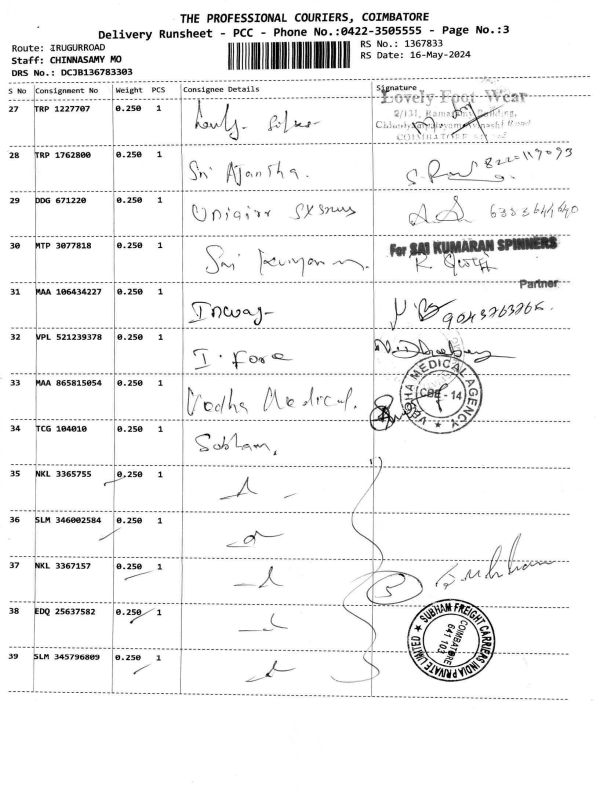 THE PROFESSIONAL COURIERS, COIMBATORE
Delivery Runsheet - PCC - Phone No.:0422-3505555 - Page No.:3
Route: IRUGURROAD
Staff: CHINNASAMY MO
DRS No.: DCJB136783303
RS No.: 1367833
RS Date: 16-May-2024
S No Consignment No Weight PCS Consignee Details Signature
Lovely Foot Wear
2/131, Ramasamy Building,
27 TRP 1227707 0.250 1
COIMBATORE
28 TRP 1762800 0.250 1 Sri Ajantha. 8220119093
29 DDG 671220 0.250 1 6383644640
30 MTP 3077818 0.250 1 Sri
For SAI KUMARAN SPINNERS
Partner
31 MAA 106434227 0.250 1
32 VPL 521239378 0.250 1 I. Fore
33 MAA 865815054 0.250 1 Vedha Medical.
VEDHA MEDICAL AGENCY
CBE - 14
34 TCG 104010 0.250 1 Subham.
35 NKL 3365755 0.250 1
36 SLM 346002584 0.250 1
37 NKL 3367157 0.250 1 5
38 EDQ 25637582 0.250 1
SUBHAM FREIGHT CARRIERS INDIA PRIVATE LIMITED
COIMBATORE
641 103.
39 SLM 345796809 0.250 1